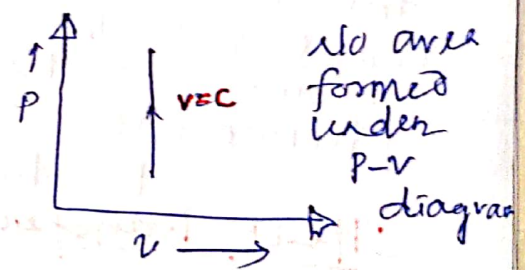 P
V=C
v
No area
formed
under
P-V
diagram